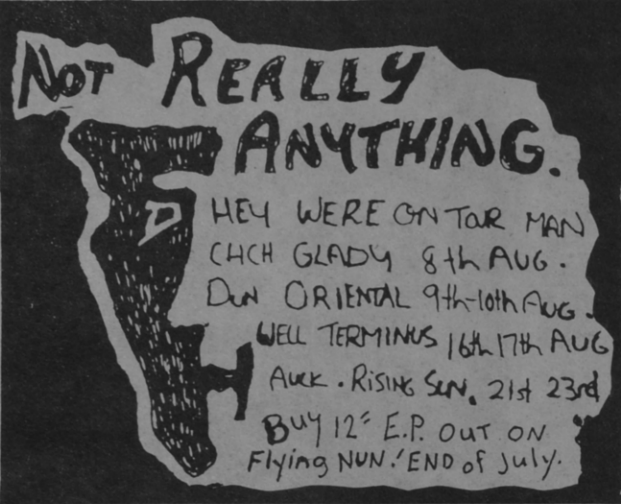 NOT REALLY
ANYTHING.
HEY WERE ON TOUR MAN
CHCH GLADY 8th AUG.
DUN ORIENTAL 9th-10th AUG.
WELL TERMINUS 16th 17th AUG
AUCK. RISING SUN. 21st 23rd
BUY 12" E.P. OUT ON
Flying NUN.' END of July.